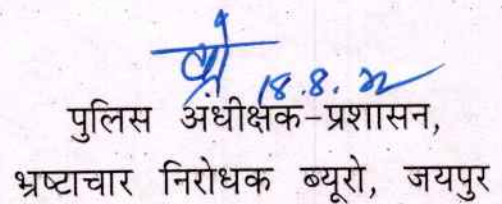 18.8.22
पुलिस अंधीक्षक-प्रशासन,
भ्रष्टाचार निरोधक ब्यूरो, जयपुर